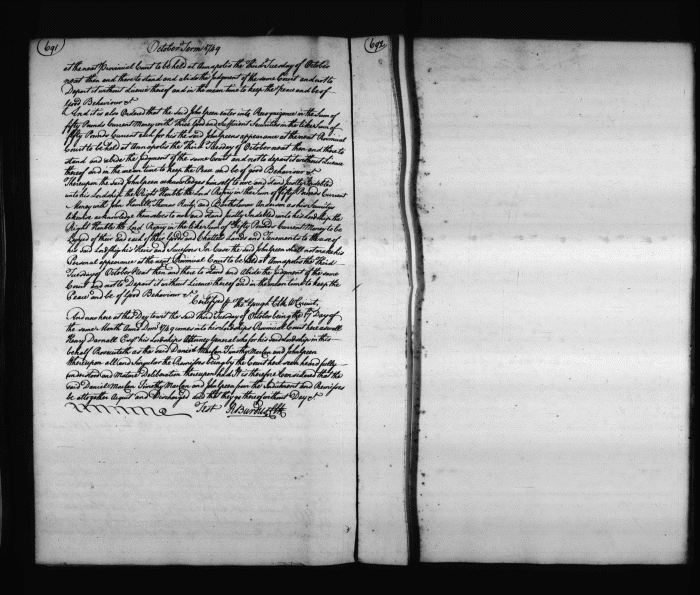 691
October Term 1749
692
at the next Provincial Court to be held at Annapolis the third Tuesday of October
next then and there to stand and abide the Judgment of the same Court and not to
Depart it without Licence thereof and in the mean time to keep the Peace and be of
Good Behaviour &c
And it is also Ordered that the said John Green enter into Recognizance in the Sum of
fifty Pounds Current Money with three Good and sufficient Sureties in the like Sum of
fifty Pounds Current each for his the said John Greens appearance at the next Provincial
Court to be held at Annapolis the Third Tuesday of October next then and there to
stand and abide the Judgment of the same Court and not to depart it without Licence
thereof and in the mean time to keep the Peace and be of good Behaviour &c
Thereupon the said John Green acknowledges himself to owe and stand justly Indebted
unto his Lordship the Right Honble the Lord Propry in the Sum of fifty Pounds Current
Money with John Thomas and Bartholomew as his Sureties
likewise acknowledge themselves to owe and stand justly Indebted unto his Lordship the
Right Honble the Lord Propry in the like Sum of Fifty Pounds Current Money to be
Levyed of their and each of their Goods and Chattels Lands and Tenements to the use of
his said Lordship his Heirs and Successors In Case the said John Green shall not make his
Personal appearance at the next Provincial Court to be held at Annapolis the third
Tuesday of October next then and there to stand and Abide the Judgment of the same
Court and not to Depart it without Licence thereof and in the mean time to keep the
Peace and be of Good Behaviour &c
Certifyed p
And now here at this Day to wit the said third Tuesday of October being the 17 Day of
the same Month Anno Dom 1749 comes into his Lordships Provincial Court here as well
Henry Darnall Esqr his Lordships Attorney general who for his said Lordship in this
behalf Prosecuteth as the said Daniel Timothy and John Green
thereupon all and Singular the Premisses being by the Court here seen heard fully
understood and Mature Deliberation thereupon had It is therefore Considered that the
said Daniel Timothy and John Green from the Indictment and Premisses
be altogether Acquit and Discharged and that they go thereof without Day &c
Test R Burdus Clk